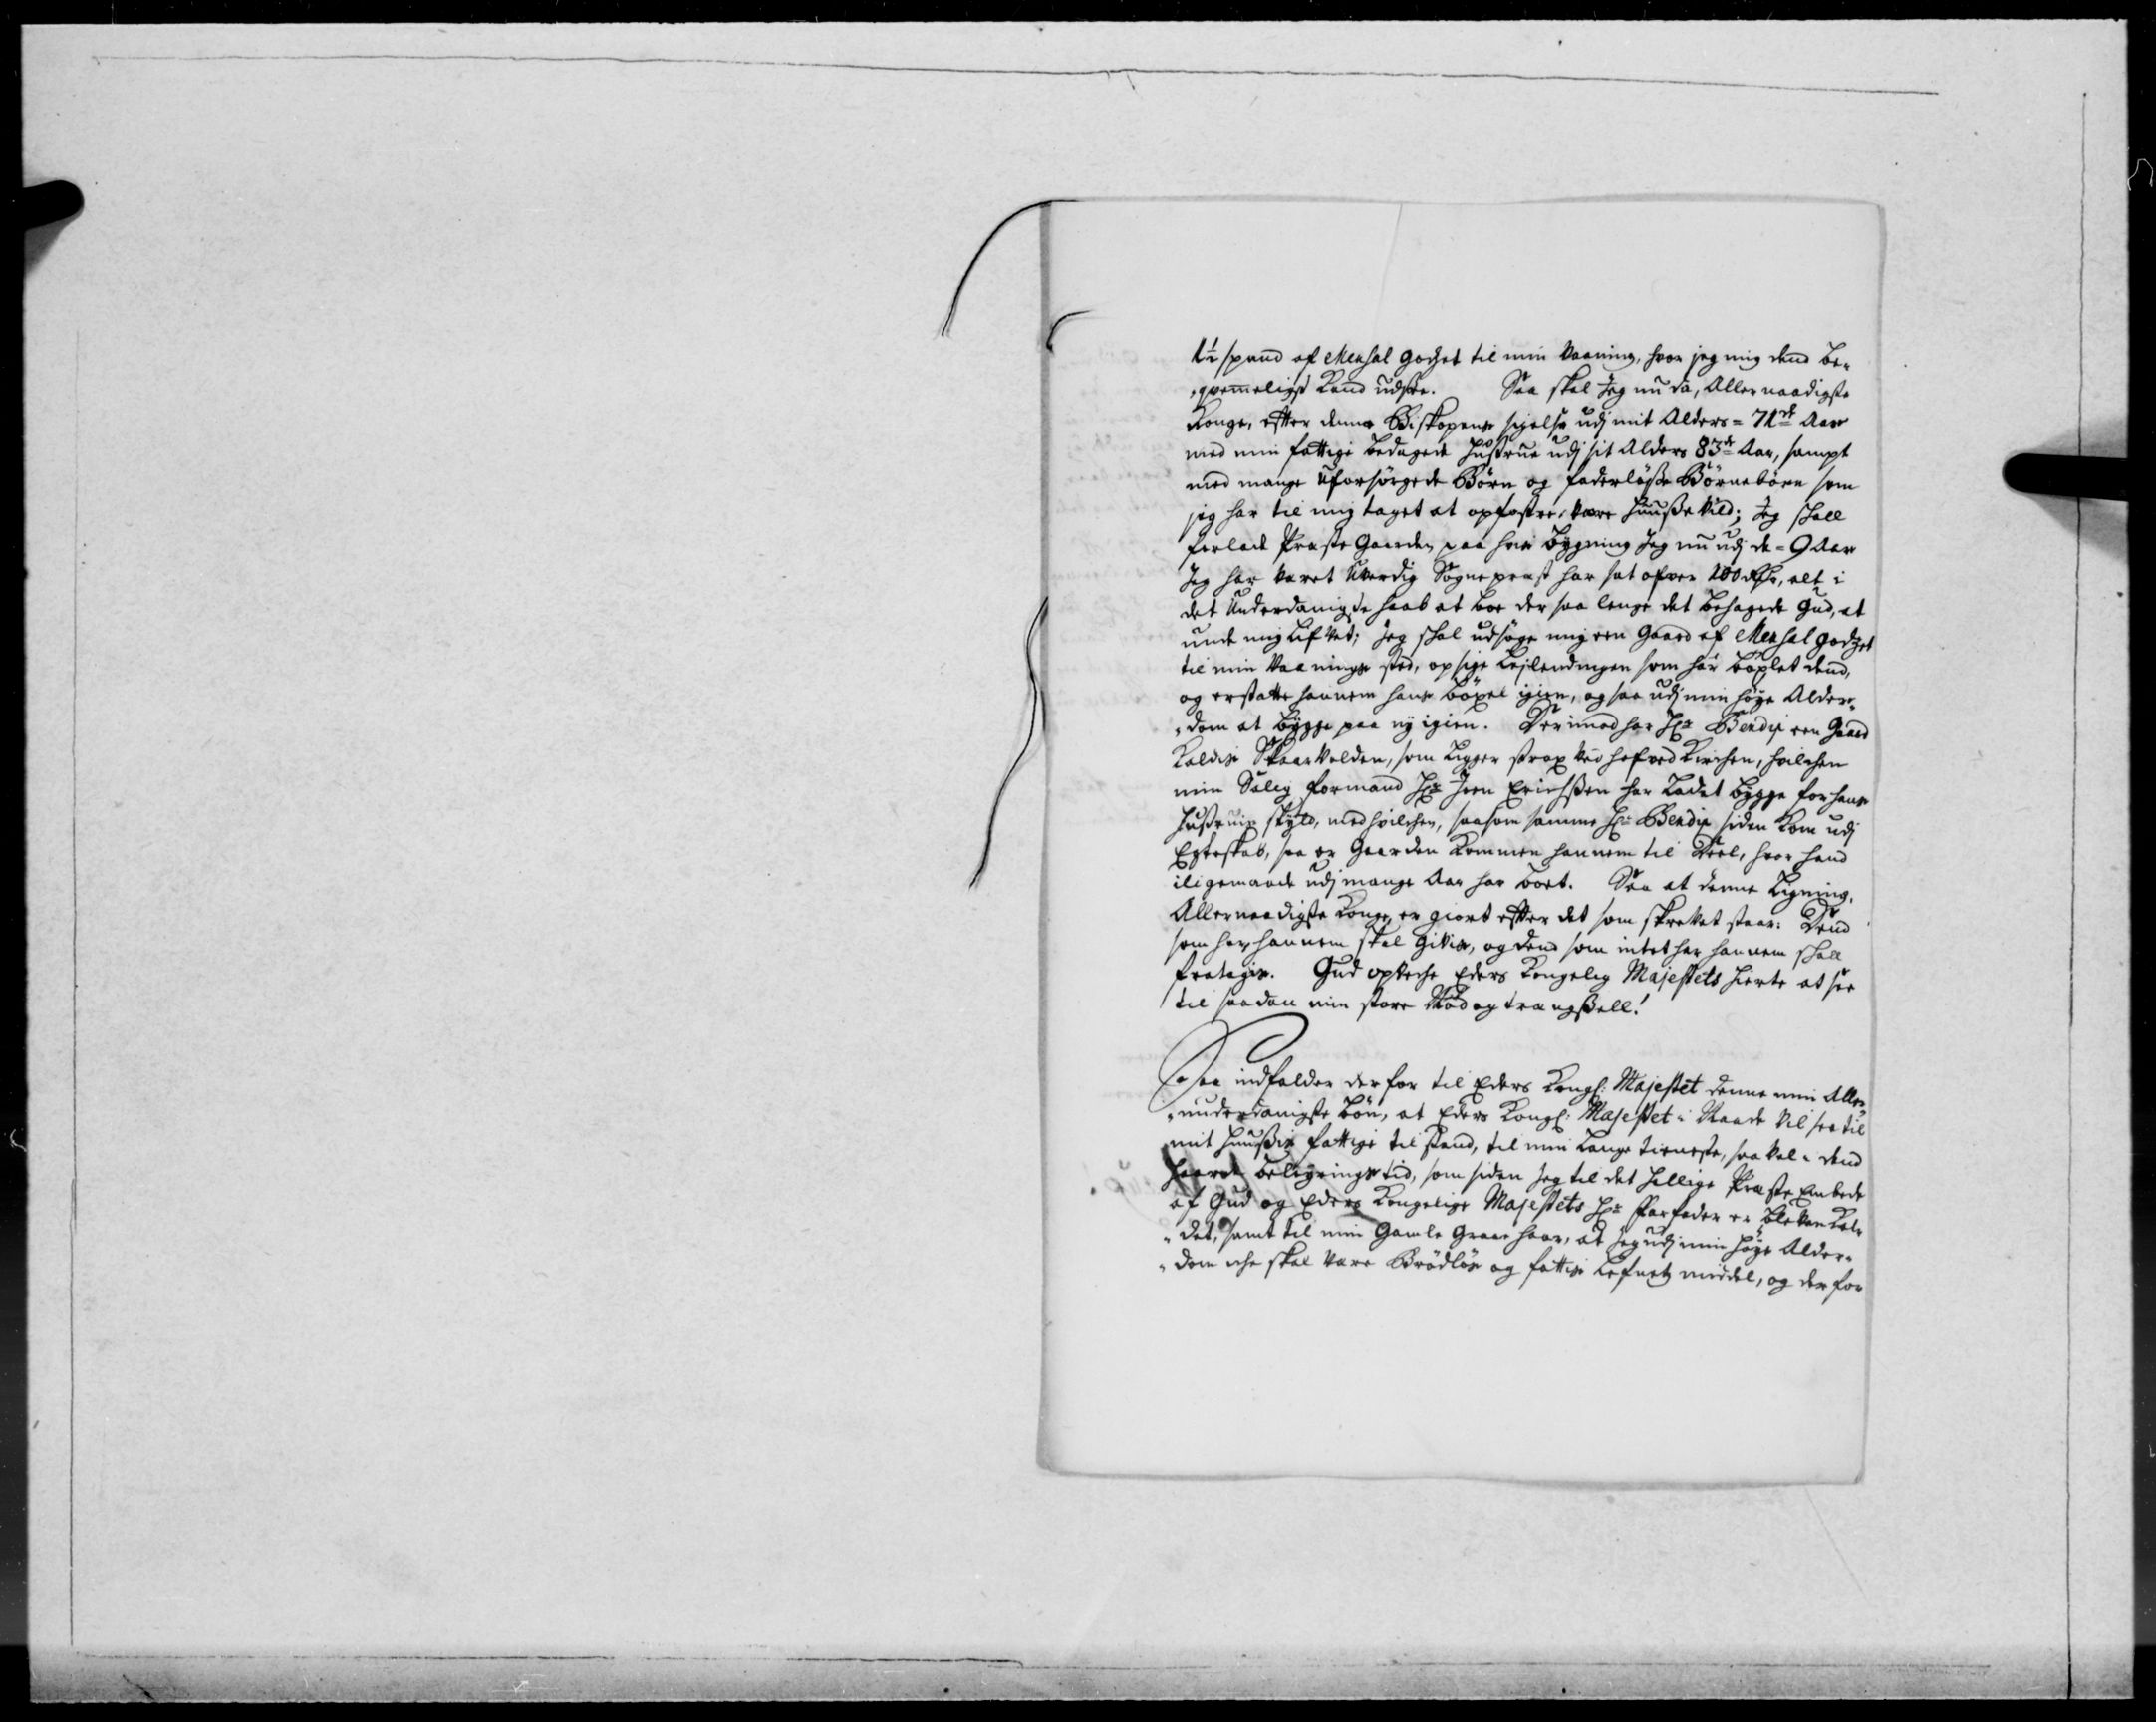 1½ spand af Mensal godzet til min Vaaning, hvor jeg mig dend be-
„qvemmeligst Kand udsee. Saa skal Jeg nu da, Allernaadigste
Konge, efter denne Biskopens sigelse udj mit Alders = 71de Aar
med min fattige bedagede Hustrue udj sit Alders 83de Aar, sampt
med mange Uforsörgede Börn og faderlöße Börnebörn som
jeg har til mig taget at opfostre, være huuße Vild; Jeg schall
forlade Præste Gaarden, paa hvis bygning Jeg nu udj de = 9 Aar
Jeg har været Uverdig Sognepræst har sat ofver 100 Rdr, alt i
det Underdanigste haab at boe der saa lenge det behagede Gud, at
unde mig Lifvet; Jeg schal udsöge mig een Gaard af Mensal godzet
til min Vaanings sted, opsige Lejlendingen som har böxlet dend,
og erstatte hannem hans böxel igien, og saa udj min höye Alder-
„dom at bygge paa ny igien. Derimod har Hr Bendix een Gaard
Kaldis Skaarvolden, som ligger strax ved hofved Kirchen, hvilchen
min Salig formand Hr Jens Erichßen har Ladet bygge for hans
Hustruis skyld, med hvilchen, saasom samme Hr Bendix siden Kom udj
Egteskab, saa er Gaarden Kommen hannem til Deel, hvor hand
iligemaade udj mange Aar har boet. Saa at denne Ligning,
Allernaadigste Konge, er giort efter det som skrevet staar: Dend
som har, hannem skal givis, og dend som intet har hannem schall
fratagis. Gud opveche Eders Kongelig Majestets Hierte at see
til saadan min store Nöd og trangßell!
Saa indfalder derfor til Eders Kongl: Majestet denne min Aller-
„underdanigste bön, at Eders Kongl: Majestet i Naade vil see til
mit huußis fattige tilstand, til min Lange tieneste, saa vel i dend
haarde beleyrings tid, som siden Jeg til det hellige Præste Embede
af Gud og Eders Kongelige Majestets Hr Farfader er bleven Kal-
„det, samt til min Gamle Graae haar, at Jeg udj min höye Alder-
„dom iche skal være Brödlös og fattis Lefnets middel, og derfor